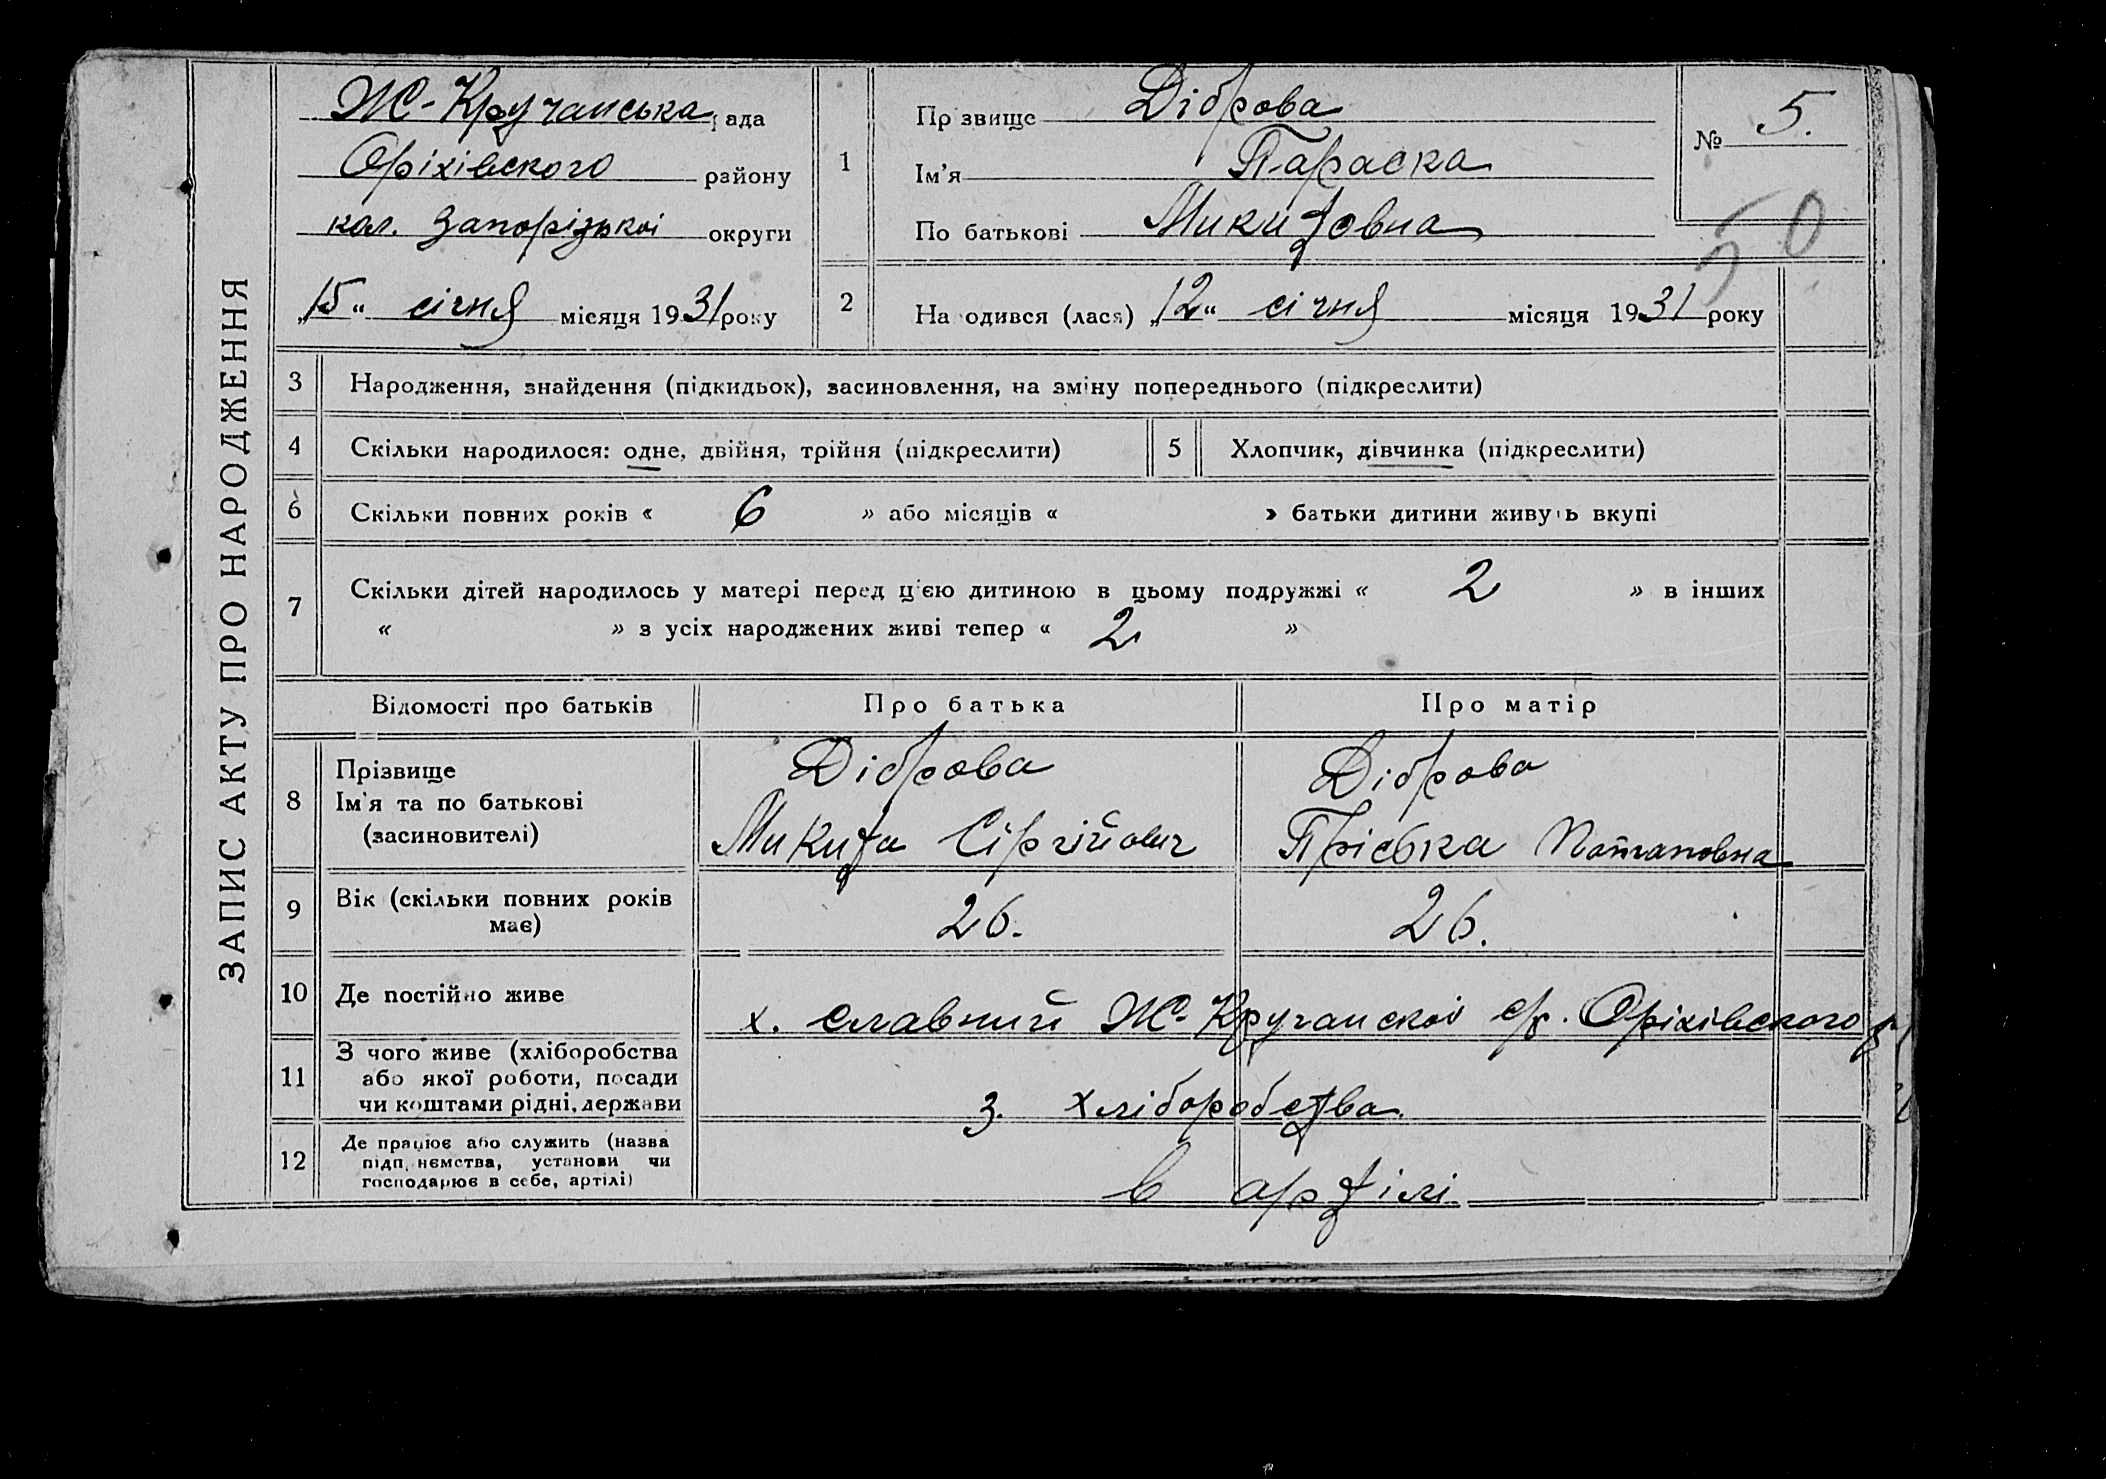 ЗАПИС АКТУ ПРО НАРОДЖЕННЯ
Ж-Кручанська рада
Оріхівского району
кол. Запорізької округи
„15“ січня місяця 1931 року
1
Прізвище Діброва
Ім'я Параска
По батькові Микитовна
№ 5.
50
2
Народився (лася) „12“ січня місяця 1931 року
3 Народження, знайдення (підкидьок), засиновлення, на зміну попереднього (підкреслити)
4 Скільки народилося: одне, двійня, трійня (підкреслити)
5 Хлопчик, дівчинка (підкреслити)
6 Скільки повних років « 6 » або місяців « » батьки дитини живуть вкупі
7 Скільки дітей народилось у матері перед ц'єю дитиною в цьому подружжі « 2 » в інших
« » з усіх народжених живі тепер « 2 »
Відомості про батьків Про батька Про матір
8 Прізвище
Ім'я та по батькові
(засиновителі)
Діброва
Микита Сіргійович
Діброва
Пріська Потаповна
9 Вік (скільки повних років
має)
26. 26.
10 Де постійно живе х. Славний Ж-Кручанскої с/р. Оріхівского
11 З чого живе (хліборобства
або якої роботи, посади
чи коштами рідні, держави
З. хліборобства.
12 Де працює або служить (назва
підприємства, установи чи
господарює в себе, артілі)
в артілі